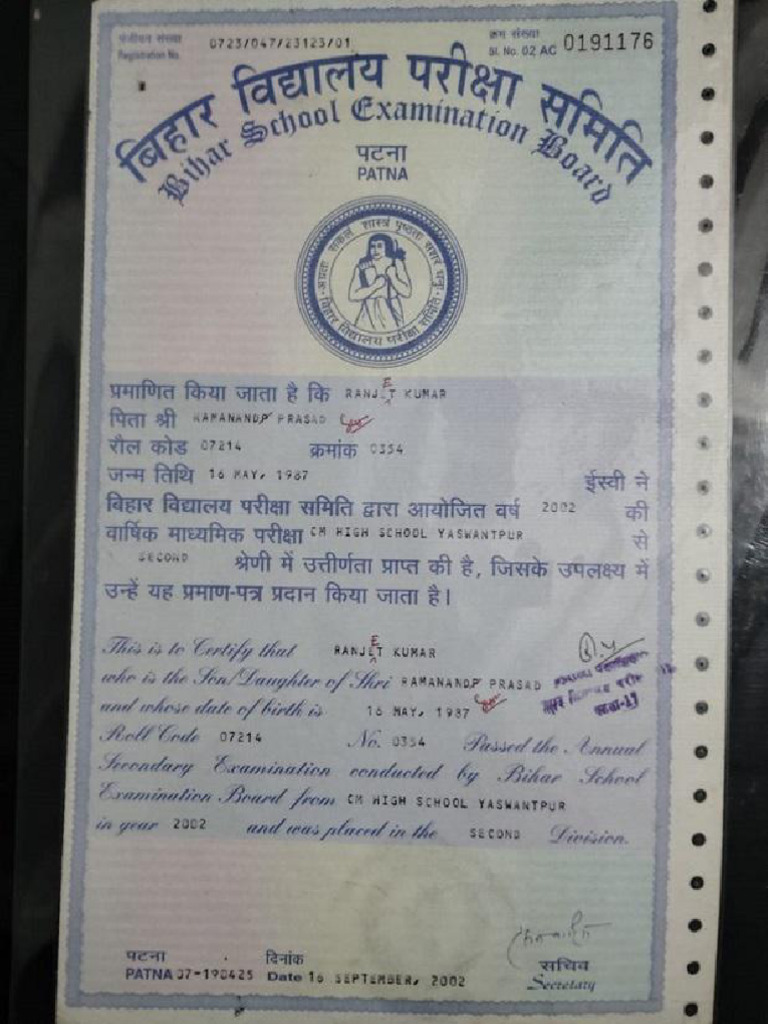 पंजीयन संख्या
Registration No. 0723/047/23123/01
क्रम संख्या
Sl. No. 02 AC 0191176
बिहार विद्यालय परीक्षा समिति
Bihar School Examination Board
पटना
PATNA
बिहार विद्यालय परीक्षा समिति
प्रमाणित किया जाता है कि RANJET KUMAR
पिता श्री RAMANAND PRASAD
रौल कोड 07214 क्रमांक 0354
जन्म तिथि 16 MAY, 1987 ईस्वी ने
बिहार विद्यालय परीक्षा समिति द्वारा आयोजित वर्ष 2002 की
वार्षिक माध्यमिक परीक्षा CM HIGH SCHOOL YASWANTPUR से
SECOND श्रेणी में उत्तीर्णता प्राप्त की है, जिसके उपलक्ष्य में
उन्हें यह प्रमाण-पत्र प्रदान किया जाता है।
This is to Certify that RANJEET KUMAR
who is the Son/Daughter of Shri RAMANAND PRASAD
and whose date of birth is 16 MAY, 1987
Roll Code 07214 No. 0354 Passed the Annual
Secondary Examination conducted by Bihar School
Examination Board from CM HIGH SCHOOL YASWANTPUR
in year 2002 and was placed in the SECOND Division.
पटना दिनांक
PATNA 07-190425 Date 16 SEPTEMBER, 2002
सचिव
Secretary